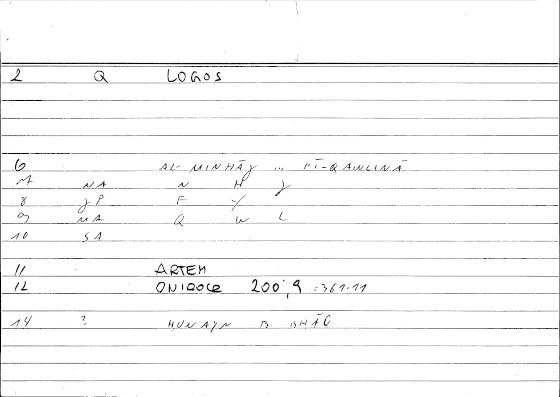 2 Q LOGOS
6 AL-MINHĀJ ... FĪ-QAWLINĀ
7 NA N H J
8 JP F Y
9 MA Q W L
10 SA
11 ARTEM
12 ONIROCR 200,9 =361.11
14 ? HUNAYN B.